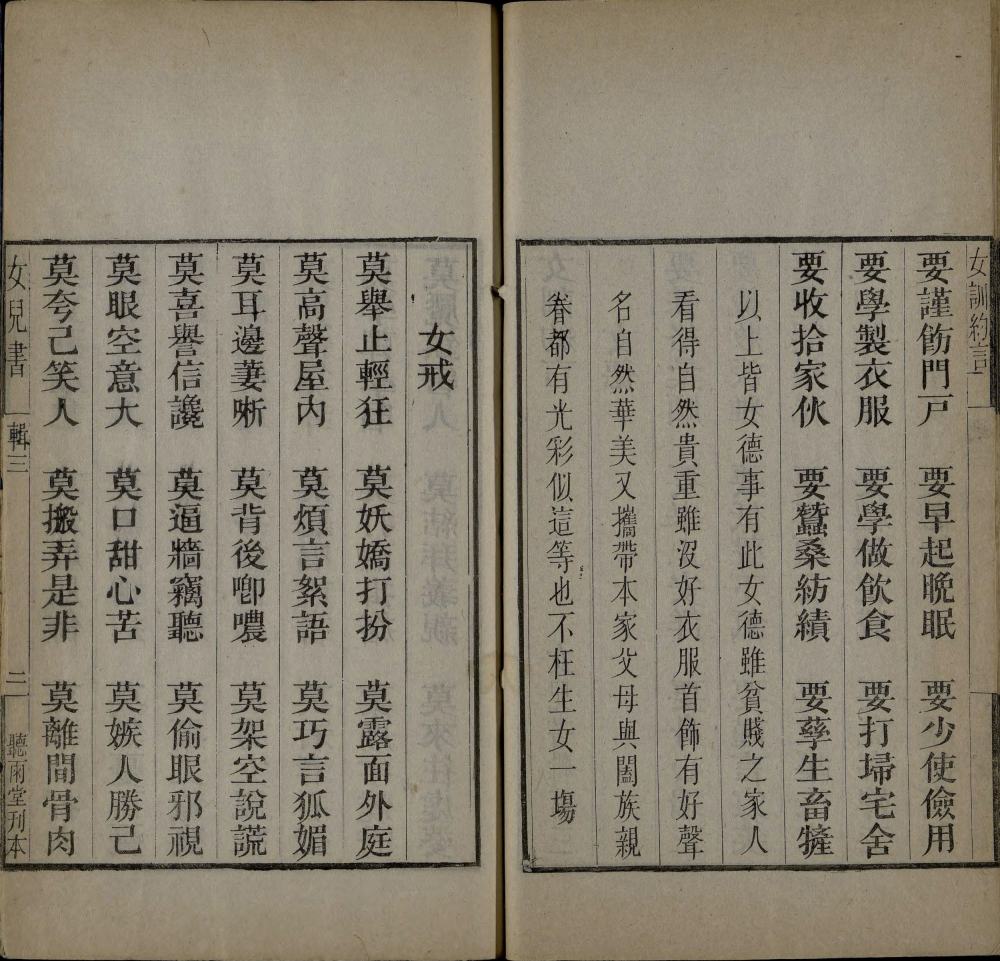 女訓約言
要謹飭門戸　要早起晚眠　要少使儉用
要學製衣服　要學做飲食　要打埽宅舍
要收拾家伙　要蠶桑紡績　要孳生畜㹌
以上皆女德事有此女德雖貧賤之家人
看得自然貴重雖沒好衣服首飾有好聲
名自然華美又攜帶本家父母與闔族親
眷都有光彩似這等也不枉生女一塲
女戒
莫舉止輕狂　莫妖嬌打扮　莫露面外庭
莫高聲屋內　莫煩言絮語　莫巧言狐媚
莫耳邊萋哳　莫背後唧噥　莫架空說謊
莫喜譽信讒　莫逼牆竊聽　莫偷眼邪視
莫眼空意大　莫口甜心苦　莫嫉人勝己
莫夸己笑人　莫搬弄是非　莫離間骨肉
女兒書　輯三　二　聽雨堂刊本